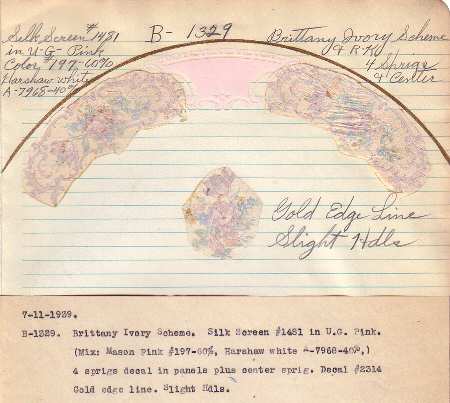 B- 1329
Silk Screen #1481
in U-G- Pink
Color #197-60%
Harshaw white
A-7968-40%
Brittany Ivory Scheme
& R.K.
4 Sprigs
& Center
Gold Edge Line
Slight Hdls
7-11-1939.
B-1329. Brittany Ivory Scheme. Silk Screen #1481 in U.G. Pink.
(Mix: Mason Pink #197-60%, Harshaw white A-7968-40%,)
4 sprigs decal in panels plus center sprig. Decal #2314
Gold edge line. Slight Hdls.